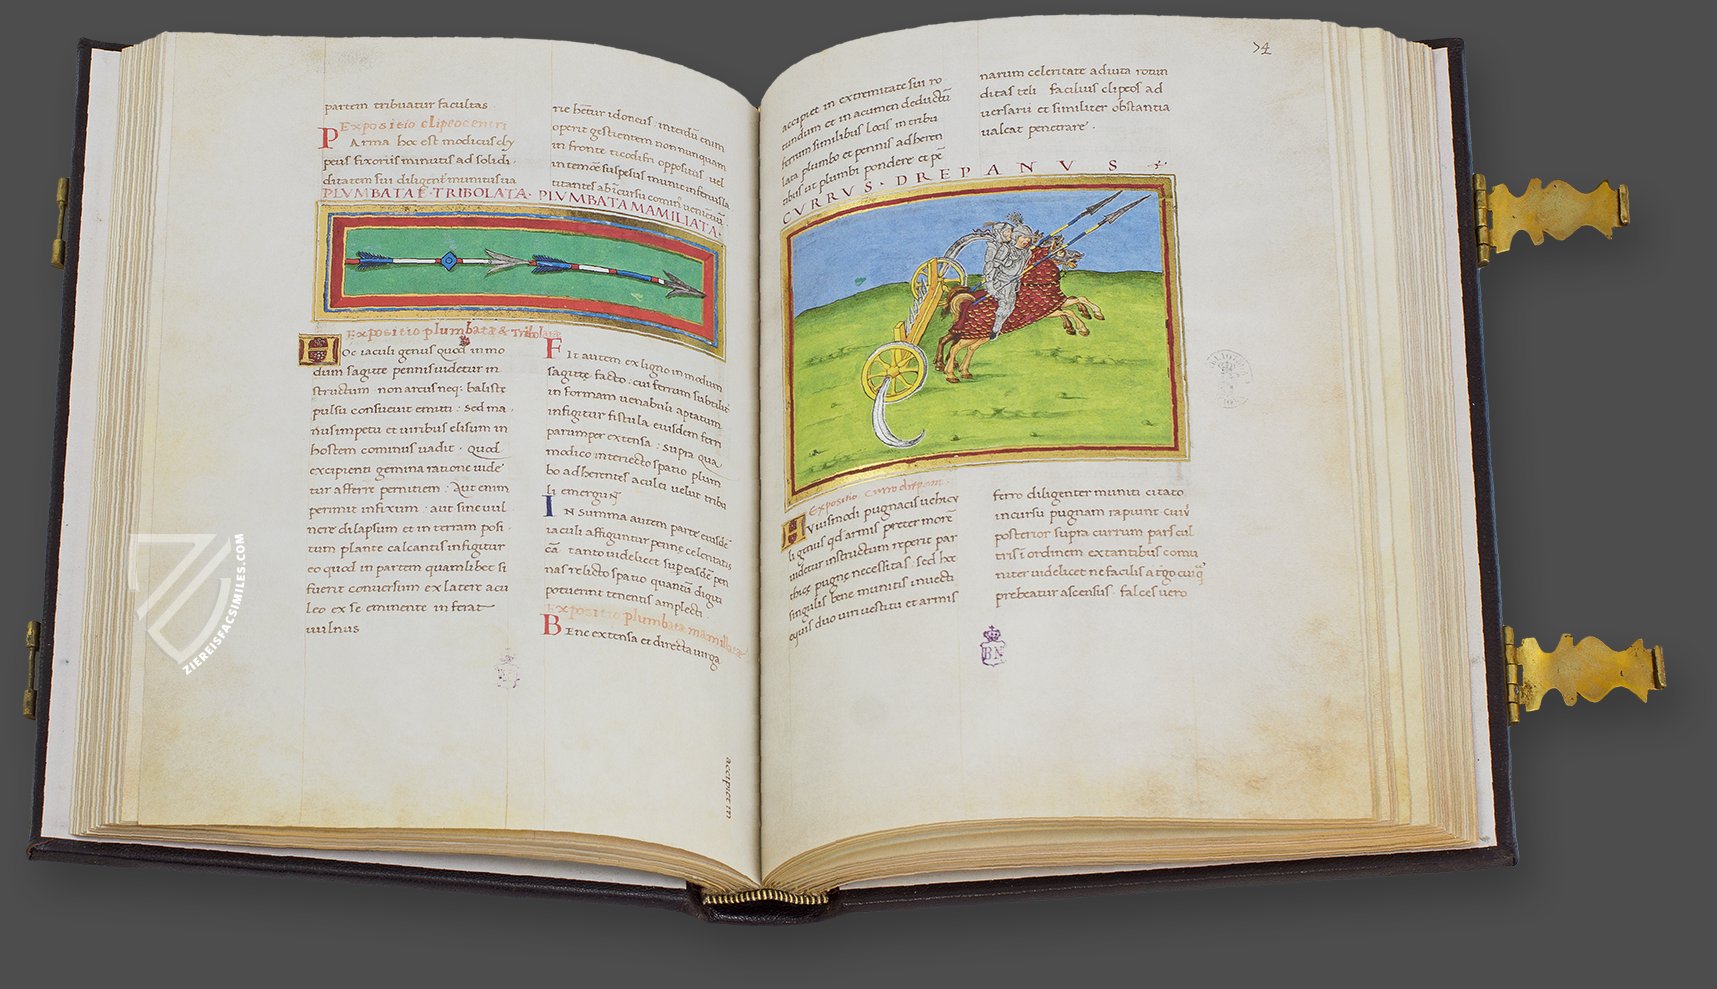 partem tribuatur facultas.
Expositio clipeocentri
PArma hoc est modicus cly
peus fixoriis minutis ad solidi
ditatem sui diligent̃ munitus ita
rie hr̃etur idoneus. interdũ enim
operit gestientem non nunquam
in fronte
vel
PLVMBATAE·TRIBOLATA· PLVMBATA MAMILIATA·
Expositio plumbatæ & Tribolatæ
HOc iaculi genus quod in mo
dum sagitte pennis uidetur in
structum. non arcus neq; baliste
pulsu consueuit emitti: Sed ma
nus impetu et uiribus elisum in
hostem cominus uadit. quod
excipienti gemina ratione uide
tur afferre pernitiem: Aut enim
permit infixum: aut sine uul
nere dilapsum et in terram posi
tum plante calcantis infigitur
eo quod in partem quamlibet si
fuerit conuersum ex latere acu
leo ex se eminente inferat
uulnus
FIt autem ex ligno in modum
sagittę facto. cui ferrum subtilit̃
in formam uenabuli aptatum
infigitur fistula eiusdem ferri
parumper extensa: supra quã
modico interiecto spatio plum
bo adherentes aculei velut tribu
li emergũt
IN summa autem parte eiusdẽ
iaculi affiguntur penne celeritatis
cã. tanto uidelicet sup̃ easdẽ pen
nas relicto spatio quantũ digiti
potuerint tenentis amplecti.
Expositio plumbata mamillatæ
BEne extensa et directa uirga
accipiet in
74
accipiet in extremitate sui ro
tundum et in acumen deductũ
ferrum similibus locis in tribu
lata plumbo et pennis adheren
tibus ut plumbi pondere et pẽ
narum celeritate adiuta rotun
ditas teli facilius clipeos ad
uersarii et similiter obstantia
ualeat penetrare.
CVRRVS·DREPANVS
Expositio curro drepani.
HViusmodi pugnacis uehicu
li genus qd armis preter morẽ
uidetur instructum reperit par
thicę pugnę necessitas. sed hoc
singulis bene munitis inuecti
equis duo uiri uestitu et armis
ferro diligenter muniti citato
incursu pugnam rapiunt cuiꝰ
posterior supra currum pars cul
tris ĩ ordinem extantibus comu
nitur uidelicet ne facilis a tergo cuiq̃
prebeatur ascensus. falces uero
BN
ZIEREISFACSIMILES.COM